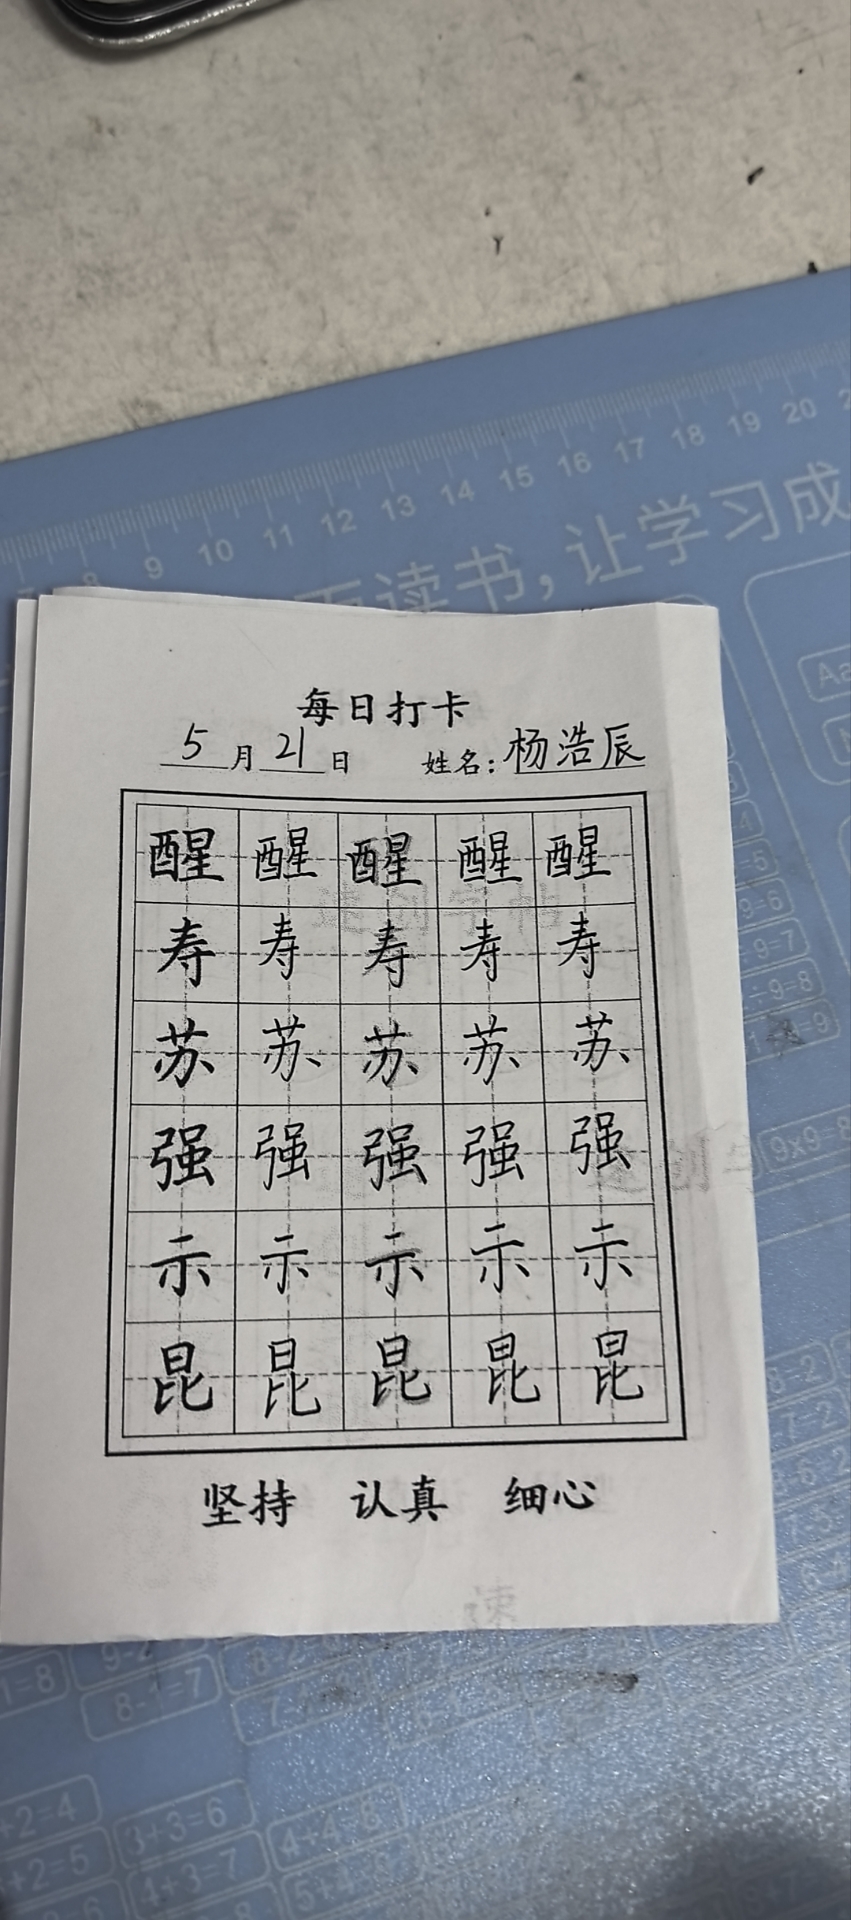 8 9 10 11 12 13 14 15 16 17 18 19 20
读书,让学习成
每日打卡
5月21日 姓名:杨浩辰
醒 醒 醒 醒 醒
寿 寿 寿 寿 寿
苏 苏 苏 苏 苏
强 强 强 强 强
示 示 示 示 示
昆 昆 昆 昆 昆
坚持 认真 细心
8-1=7
3+3=6
4+3=7